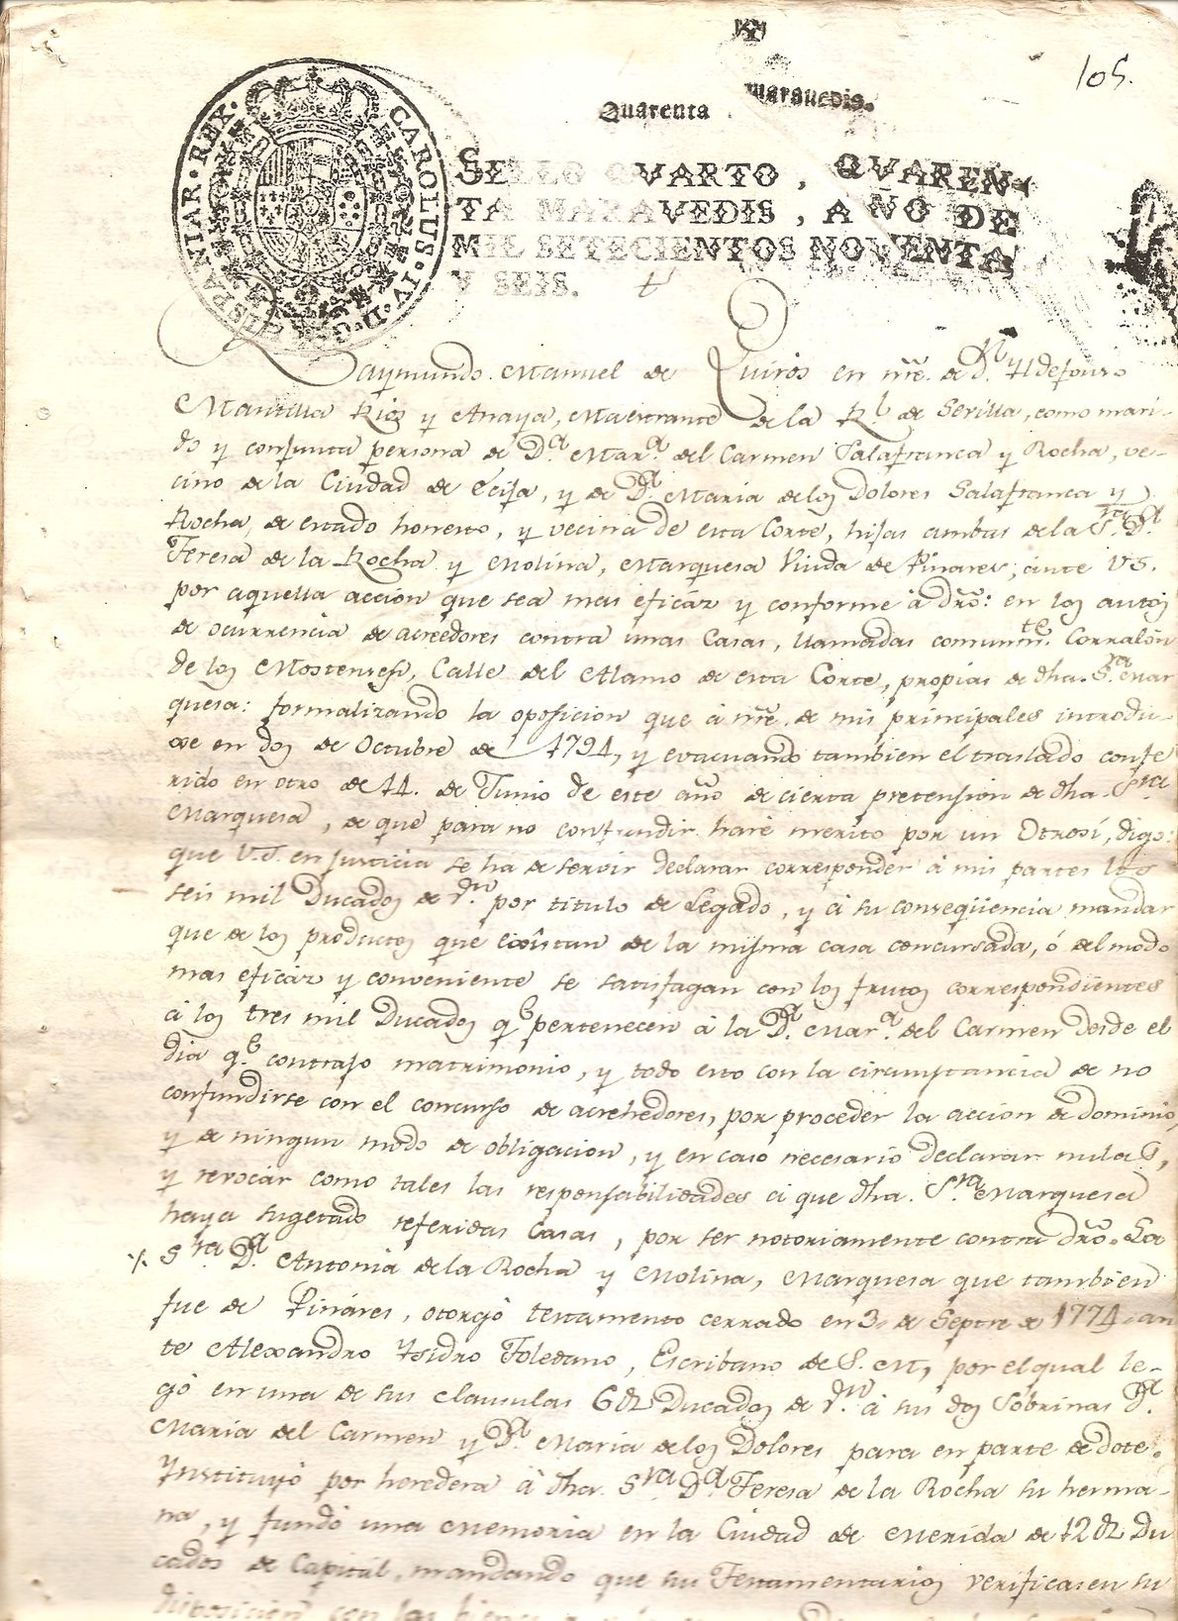 105.
Quarenta maravedis.
CAROLUS · IV · D · G · HISPANIAR · REX ·
SELLO QVARTO, QVAREN-
TA MARAVEDIS, AÑO DE
MIL SETECIENTOS NOVENTA
Y SEIS.
Raymundo Manuel de Quirós en nre. de Dn. Yldefonso
Mantilla Rios y Anaya, Maestrante de la Rl. de Sevilla, como mari-
do y conjunta persona de Da. Mara. del Carmen Salafranca y Rocha, ve-
cino de la Ciudad de Ecija, y de Da. Maria de los Dolores Salafranca y
Rocha, de estado honesto, y vecina de esta Corte, hijas ambas de la Sra. Da.
Teresa de la Rocha y Molina, Marquesa Viuda de Pinares; ante V.S.
por aquella accion que sea mas eficáz y conforme á dro: en los autos
de ocurrencia de acreedores contra unas Casas, llamadas comunmte. Corralón
de los Mostenses, Calle del Alamo de esta Corte, propias de dha. Sra. Mar
quesa: formalizando la oposicion que á nre. de mis principales introdu-
xe en dos de Octubre de 1794, y evacuando tambien el traslado confe
rido en otro de 14. de Junio de este año de cierta pretension de dha. Sra.
Marquesa, de que para no confundir haré merito por un Otrosí, digo:
que V.S. en justicia se ha de servir declarar corresponder á mis partes los
seis mil Ducados de vn. por titulo de Legado, y á su conseqüencia mandar
que de los productos que existan de la misma casa concursada, ó del modo
mas eficáz y conveniente se satisfagan con los frutos correspondientes
á los tres mil Ducados qe. pertenecen á la Da. Mara. del Carmen desde el
dia qe. contrajo matrimonio, y todo esto con la circunstancia de no
confundirse con el concurso de acrehedores, por proceder la accion de dominio,
y de ningun modo de obligacion, y en caso necesario declarar nulas,
y revocar como tales las responsabilidades á que dha. Sra. Marquesa
haya sugetado referidas Casas, por ser notoriamente contra dro. La
Sra. Da. Antonia de la Rocha y Molina, Marquesa que tambien
fue de Pináres, otorgó testamento cerrado en 3. de Septre. de 1774. an
te Alexandro Ysidro Toledano, Escribano de S. M., por el qual le-
gó en una de sus clausulas 6 Ducados de vn. á sus dos Sobrinas Da.
Maria del Carmen y Da. Maria de los Dolores para en parte de dote.
Ynstituyó por heredera á dha. Sra. Da. Teresa de la Rocha su herma-
na, y fundó una Memoria en la Ciudad de Merida de 12 Du
cados de Capitál, mandando que sus Testamentarios verificasen su
disposicion con los bienes